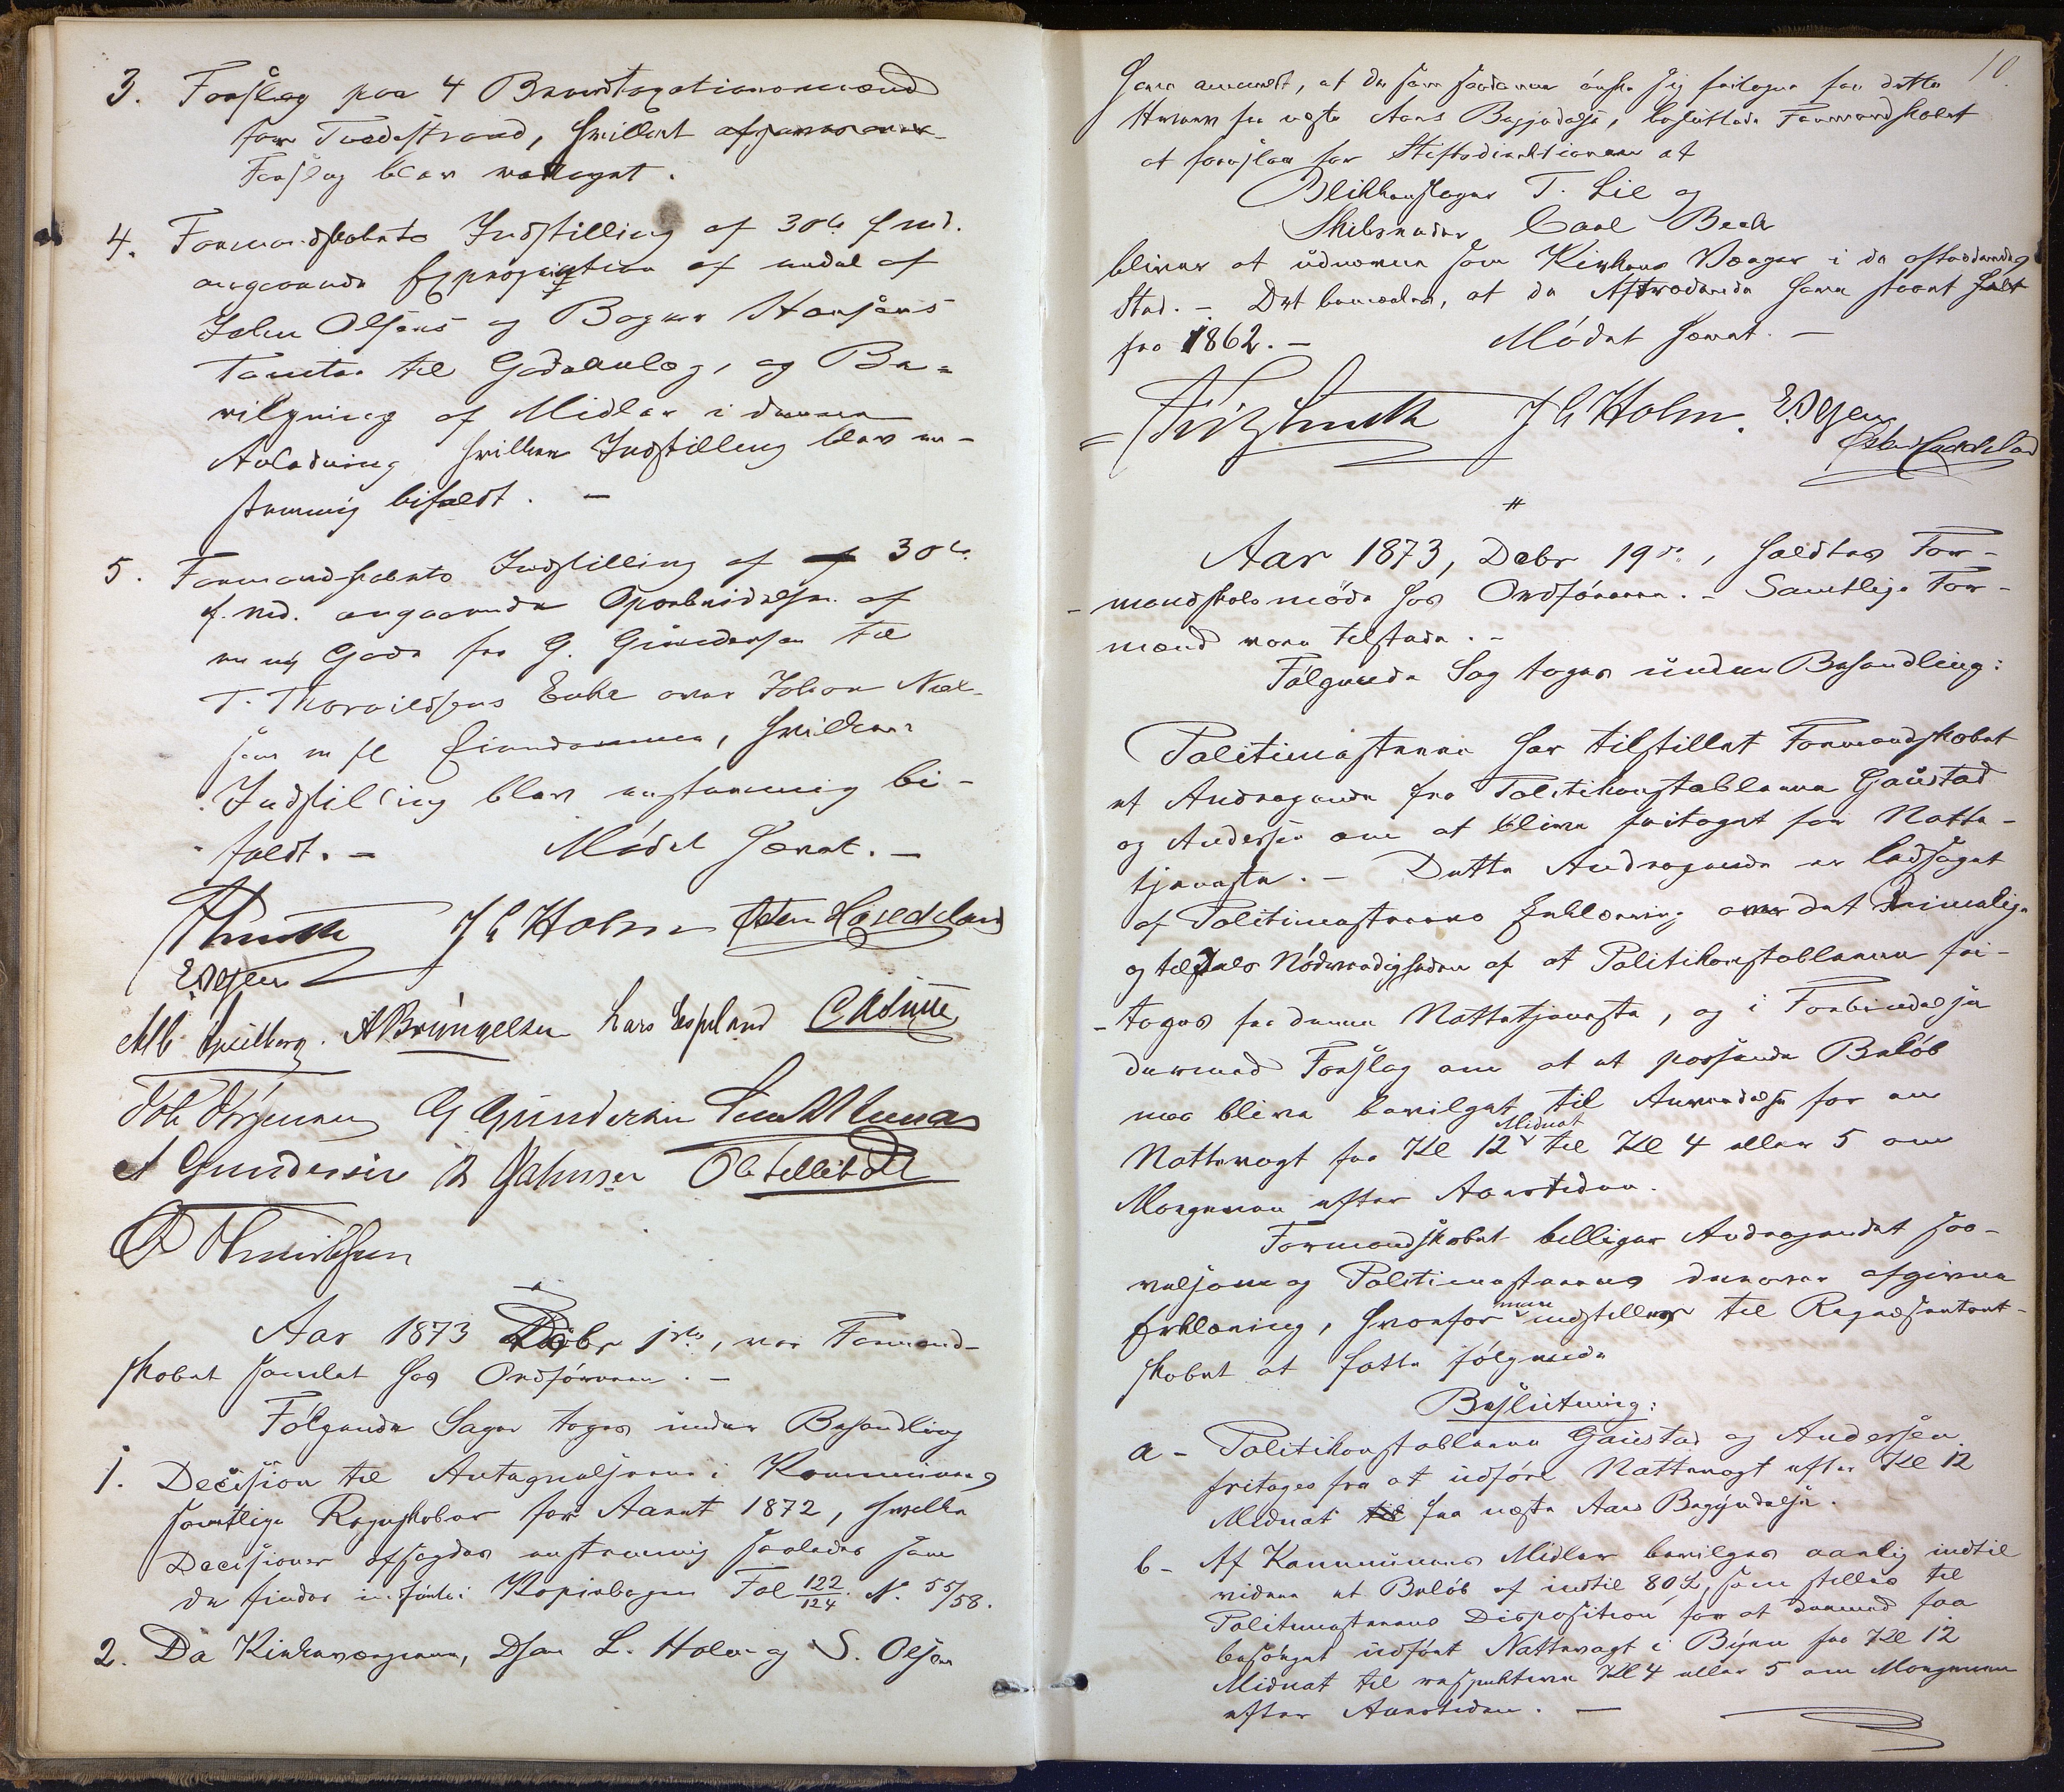 3. Forslag paa 4 Brandtaxationsmænd
for Tvedestrand, hvilket
Forslag blev vedtaget.
4. Formandskabets Indstilling af 30te f. Md.
angaaende Expropriation af endel af
John Olsens og Bager Hansens
Tomter til Gadeanlæg, og Be=
vilgning af Midler i denne
Anledning, hvilken Indstilling blev en-
stemmig bifaldt. –
5. Formandskabets Indstilling af 30te
f. Md. angaaende Oparbeidelse af
en ny Gade fra G. Gundersen til
T. Thorvildsens Enke over Johan Niel-
sens m fl Eiendomme, hvilken
Indstilling blev enstemmig bi-
faldt. – Mödet hævet. –
Smith J C Holm Østen Hasledeland
EVejen
A Brüngelsen Lars Espeland
Joh Jörgensen G Gundersen
A Gundersen
Aar 1873 Debr 1ste, var Formand-
skabet samlet hos Ordföreren. –
Fölgende Sager toges under Behandling
1. Decision til Antegnelserne i Kommunens
samtlige Regnskaber for Aaret 1872, hvilke
Decisioner afsagdes enstemmig saaledes som
de findes indförte i Kopiebogen Fol 122/124 N. 55/58.
2. Da Kirkeværgerne, Dhrr L. Holm og S. Olsen
10.
have anmeldt, at de som saadanne önske sig fritagne for dette
Hverv fra næste Aars Begyndelse, besluttede Formandskabet
at foreslaa for Stiftsdirektionen at
Blikkenslager T. Lie og
Skibsreder Carl Bech
bliver at udnævne som Kirkens Værger i de aftrædendes
Sted. – Det bemærkes, at de Aftrædende have staaet
fra 1862. – Mödet hævet. –
Fritz Smith J C Holm. EVejen
Østen Hasledeland
#
Aar 1873, Debr 19de, holdtes For-
mandskabsmöde hos Ordföreren. – Samtlige For-
mænd vare tilstede. –
Fölgende Sag toges under Behandling:
Politimesteren har tilstillet Formandskabet
et Andragende fra Politikonstablerne Gaustad
og Andersen om at blive fritaget for Natte-
tjeneste. – Dette Andragende er ledsaget
af Politimesterens Erklæring over det Rimelige
og tildels Nödvendigheden af at Politikonstablerne fri-
tages fra denne Nattetjeneste, og i Forbindelse
dermed Forslag om at et passende Belöb
maa blive bevilget til Anvendelse for en
Nattevagt fra Kl 12 Midnat til Kl 4 eller 5 om
Morgenen efter Aarstiden.
Formandskabet billiger Andragendet saa-
velsom og Politimesterens derover afgivne
Erklæring, hvorfor man indstiller til Repræsentant-
skabet at fatte fölgende
Beslutning:
a – Politikonstablerne Gaustad og Andersen
fritages fra at udföre Nattevagt efter Kl 12
Midnat fra næste Aars Begyndelse.
b – Af Kommunens Midler bevilges aarlig indtil
videre et Belöb af indtil 80 , som stilles til
Politimesterens Disposition for at dermed faa
besörget udfört Nattevagt i Byen fra Kl 12
Midnat til respektive Kl 4 eller 5 om Morgenen
efter Aarstiden. –